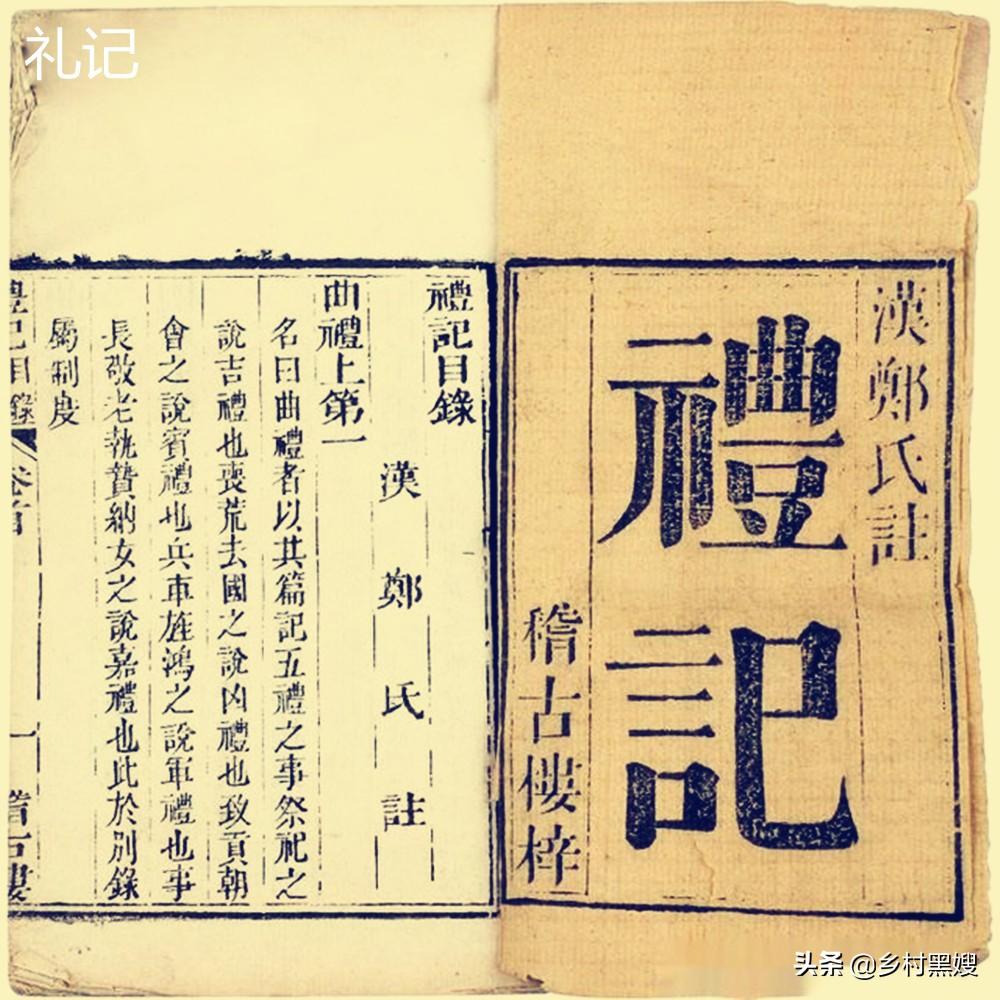 礼记
漢鄭氏註
禮記
稽古樓梓
禮記目錄
漢鄭氏註
曲禮上第一
名曰曲禮者以其篇記五禮之事祭祀之
說吉禮也喪荒去國之說凶禮也致貢朝
會之說賓禮也兵車旌鴻之說軍禮也事
長敬老執贄納女之說嘉禮也此於別錄
屬制度
禮記目錄 卷首 一 稽古樓
头条 @乡村黑嫂